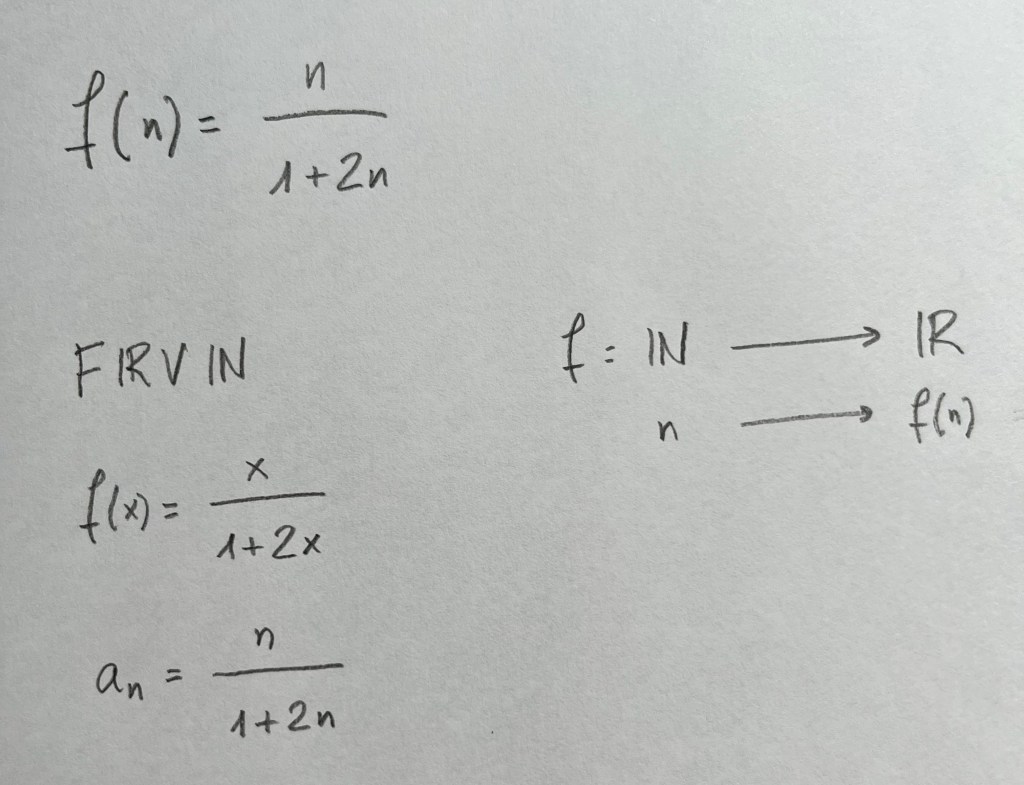 f(n) = n / 1+2n
FIRV IN
f : IN ⟶ IR
n ⟶ f(n)
f(x) = x / 1+2x
aₙ = n / 1+2n